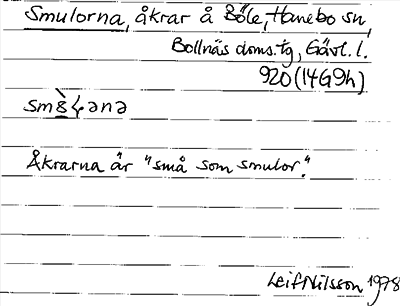 Smulorna, åkrar å Böle, Hanebo sn,
Bollnäs doms. tg, Gävl. l.
920 (14G9h)
Åkrarna är "små som smulor."
Leif Nilsson 1978